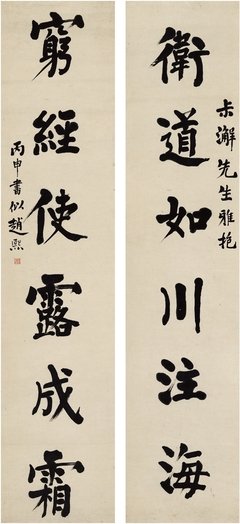 衛道如川注海
窮經使露成霜
先生雅挹
丙申書似趙熙